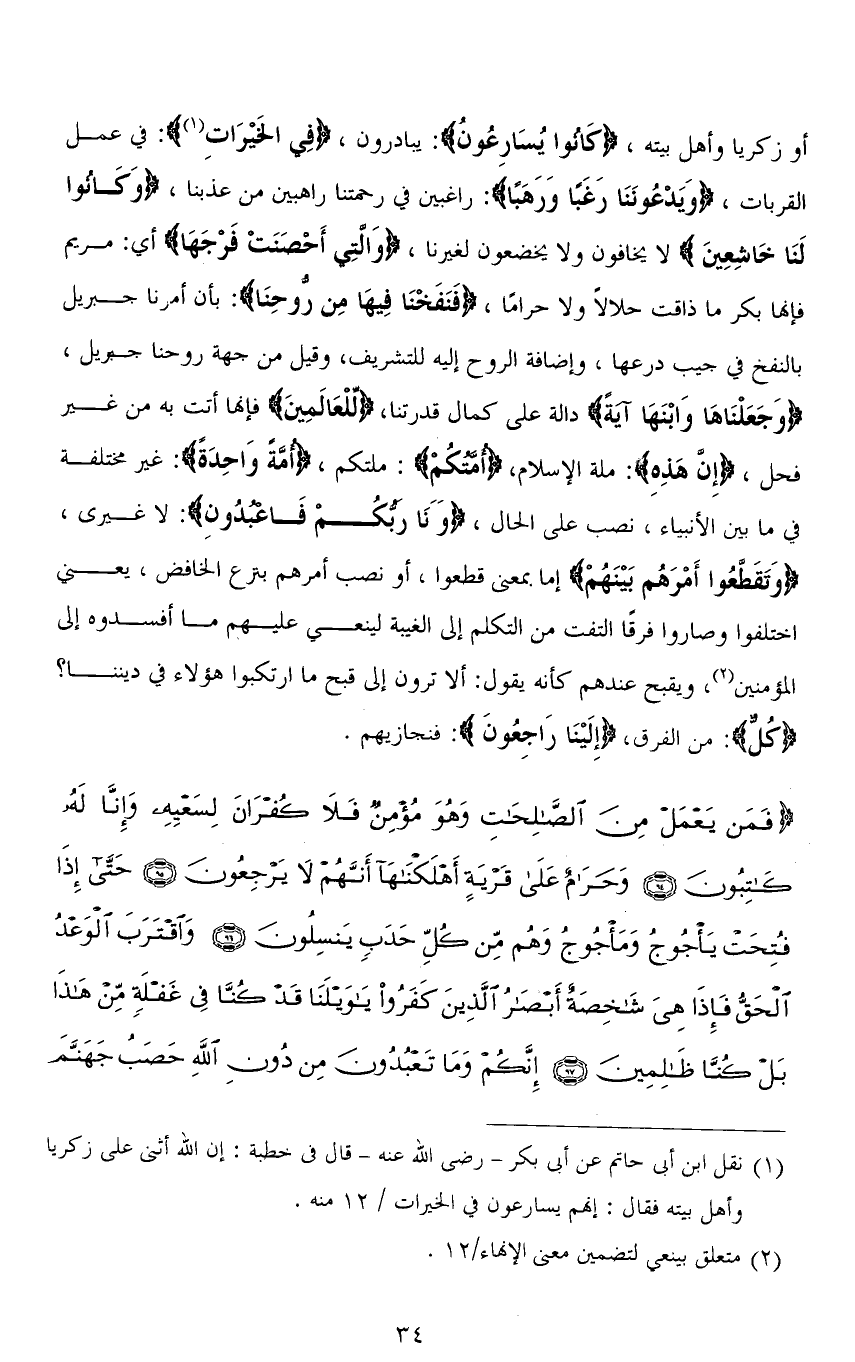 أو زكريا وأهل بيته ، ﴿كَانُوا يُسَارِعُونُ﴾: يبادرون ، ﴿فِي الخَيْرَاتِ(١)﴾: في عمـــل
القربات ، ﴿وَيَدْعُونَنَا رَغَبًا وَرَهَبًا﴾: راغبين في رحمتنا راهبين من عذبنا ، ﴿وَكَـــانُوا
لَنَا خَاشِعِينَ ﴾ لا يخافون ولا يخضعون لغيرنا ، ﴿وَالَّتِي أَحْصَنَتْ فَرْجَهَا﴾ أي: مـــريم
فإنها بكر ما ذاقت حلالاً ولا حرامًا ، ﴿فَنَفَخْنَا فِيهَا مِن رُّوحِنَا﴾: بأن أمرنا جـــبريل
بالنفخ في جيب درعها ، وإضافة الروح إليه للتشريف، وقيل من جهة روحنا جـبريل ،
﴿وَجَعَلْنَاهَا وَابْنَهَا آيَةً﴾ دالة على كمال قدرتنا، ﴿لِّلْعَالَمِينَ﴾ فإنها أتت به من غـــير
فحل ، ﴿إِنَّ هَذِهِ﴾: ملة الإسلام، ﴿أُمَّتُكُمْ﴾ : ملتكم ، ﴿أُمَّةً وَاحِدَةً﴾: غير مختلفـــة
في ما بين الأنبياء ، نصب على الحال ، ﴿وَنَا رَبُّكُـــــمْ فَـــاعْبُدُونِ﴾: لا غـــيرى ،
﴿وَتَقَطَّعُوا أَمْرَهُم بَيْنَهُمْ﴾ إما بمعنى قطعوا ، أو نصب أمرهم بنزع الخافض ، يعـــــني
اختلفوا وصاروا فرقًا التفت من التكلم إلى الغيبة لينعـــي عليـــهم مـــا أفســـدوه إلى
المؤمنين(٢)، ويقبح عندهم كأنه يقول: ألا ترون إلى قبح ما ارتكبوا هؤلاء في ديننـــــا؟
﴿كُلٌّ﴾: من الفرق، ﴿إِلَيْنَا رَاجِعُونَ ﴾: فنجازيهم .
﴿ فَمَن يَعْمَلْ مِنَ ٱلصَّٰلِحَٰتِ وَهُوَ مُؤْمِنٌ فَلَا كُفْرَانَ لِسَعْيِهِۦ وَإِنَّا لَهُۥ
كَٰتِبُونَ ٩٤ وَحَرَٰمٌ عَلَىٰ قَرْيَةٍ أَهْلَكْنَٰهَآ أَنَّهُمْ لَا يَرْجِعُونَ ٩٥ حَتَّىٰٓ إِذَا
فُتِحَتْ يَأْجُوجُ وَمَأْجُوجُ وَهُم مِّن كُلِّ حَدَبٍ يَنسِلُونَ ٩٦ وَٱقْتَرَبَ ٱلْوَعْدُ
ٱلْحَقُّ فَإِذَا هِىَ شَٰخِصَةٌ أَبْصَٰرُ ٱلَّذِينَ كَفَرُوا۟ يَٰوَيْلَنَا قَدْ كُنَّا فِى غَفْلَةٍ مِّنْ هَٰذَا
بَلْ كُنَّا ظَٰلِمِينَ ٩٧ إِنَّكُمْ وَمَا تَعْبُدُونَ مِن دُونِ ٱللَّهِ حَصَبُ جَهَنَّمَ
(١) نقل ابن أبى حاتم عن أبى بكر - رضى الله عنه - قال فى خطبة : إن الله أثنى على زكريا
وأهل بيته فقال : إنهم يسارعون في الخيرات / ١٢ منه .
(٢) متعلق بينعي لتضمين معنى الإنهاء/١٢ .
٣٤